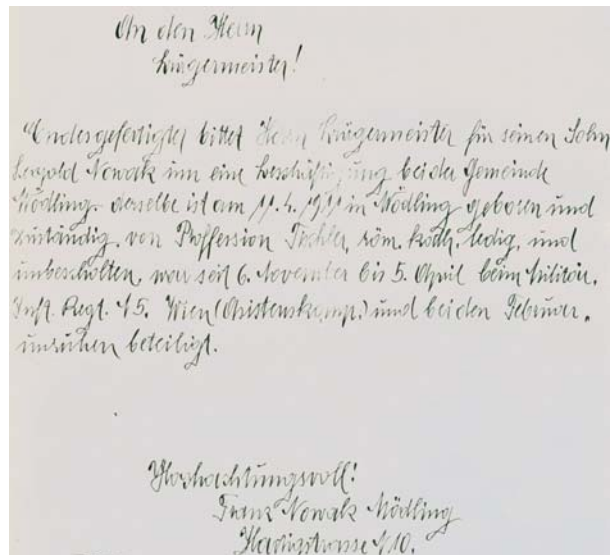 An den Herrn
Bürgermeister!
Endesgefertigter bittet Herrn Bürgermeister für seinen Sohn
Leopold Nowak um eine Beschäftigung bei der Gemeinde
Mödling. derselbe ist am 11.4.1911 in Mödling geboren und
zuständig, von Proffession Tischler, röm. kath. ledig, und
unbescholten, war seit 6. November bis 5. April beim Militär.
Inft. Regt. 15. Wien (Assistenzkomp.) und bei den Februar-
unruhen beteiligt.
Hochachtungsvoll!
Franz Nowak Mödling
10.